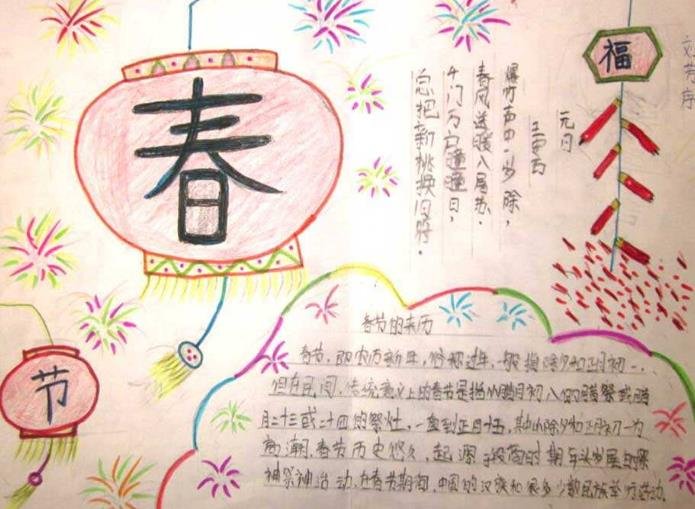 春
节
福
元日
王安石
爆竹声中一岁除,
春风送暖入屠苏.
千门万户曈曈日,
总把新桃换旧符.
春节的来历
春节,即农历新年,俗称过年,一般指除夕和正月初一.
但在民间,传统意义上的春节是指从腊月初八的腊祭或腊
月二十三或二十四的祭灶,一直到正月十五,其中以除夕和正月初一为
高潮.春节历史悠久,起源于殷商时期年头岁尾的祭
神祭神活动.在春节期间,中国的汉族和很多少数民族举行活动.